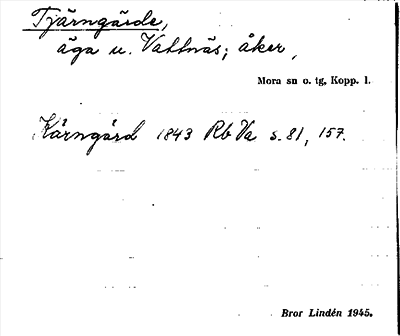 Tjärngärde,
äga u. Vattnäs; åker,
Mora sn o. tg, Kopp. l.
Kärngård 1843 Rb Va s. 81, 157.
Bror Lindén 1945.